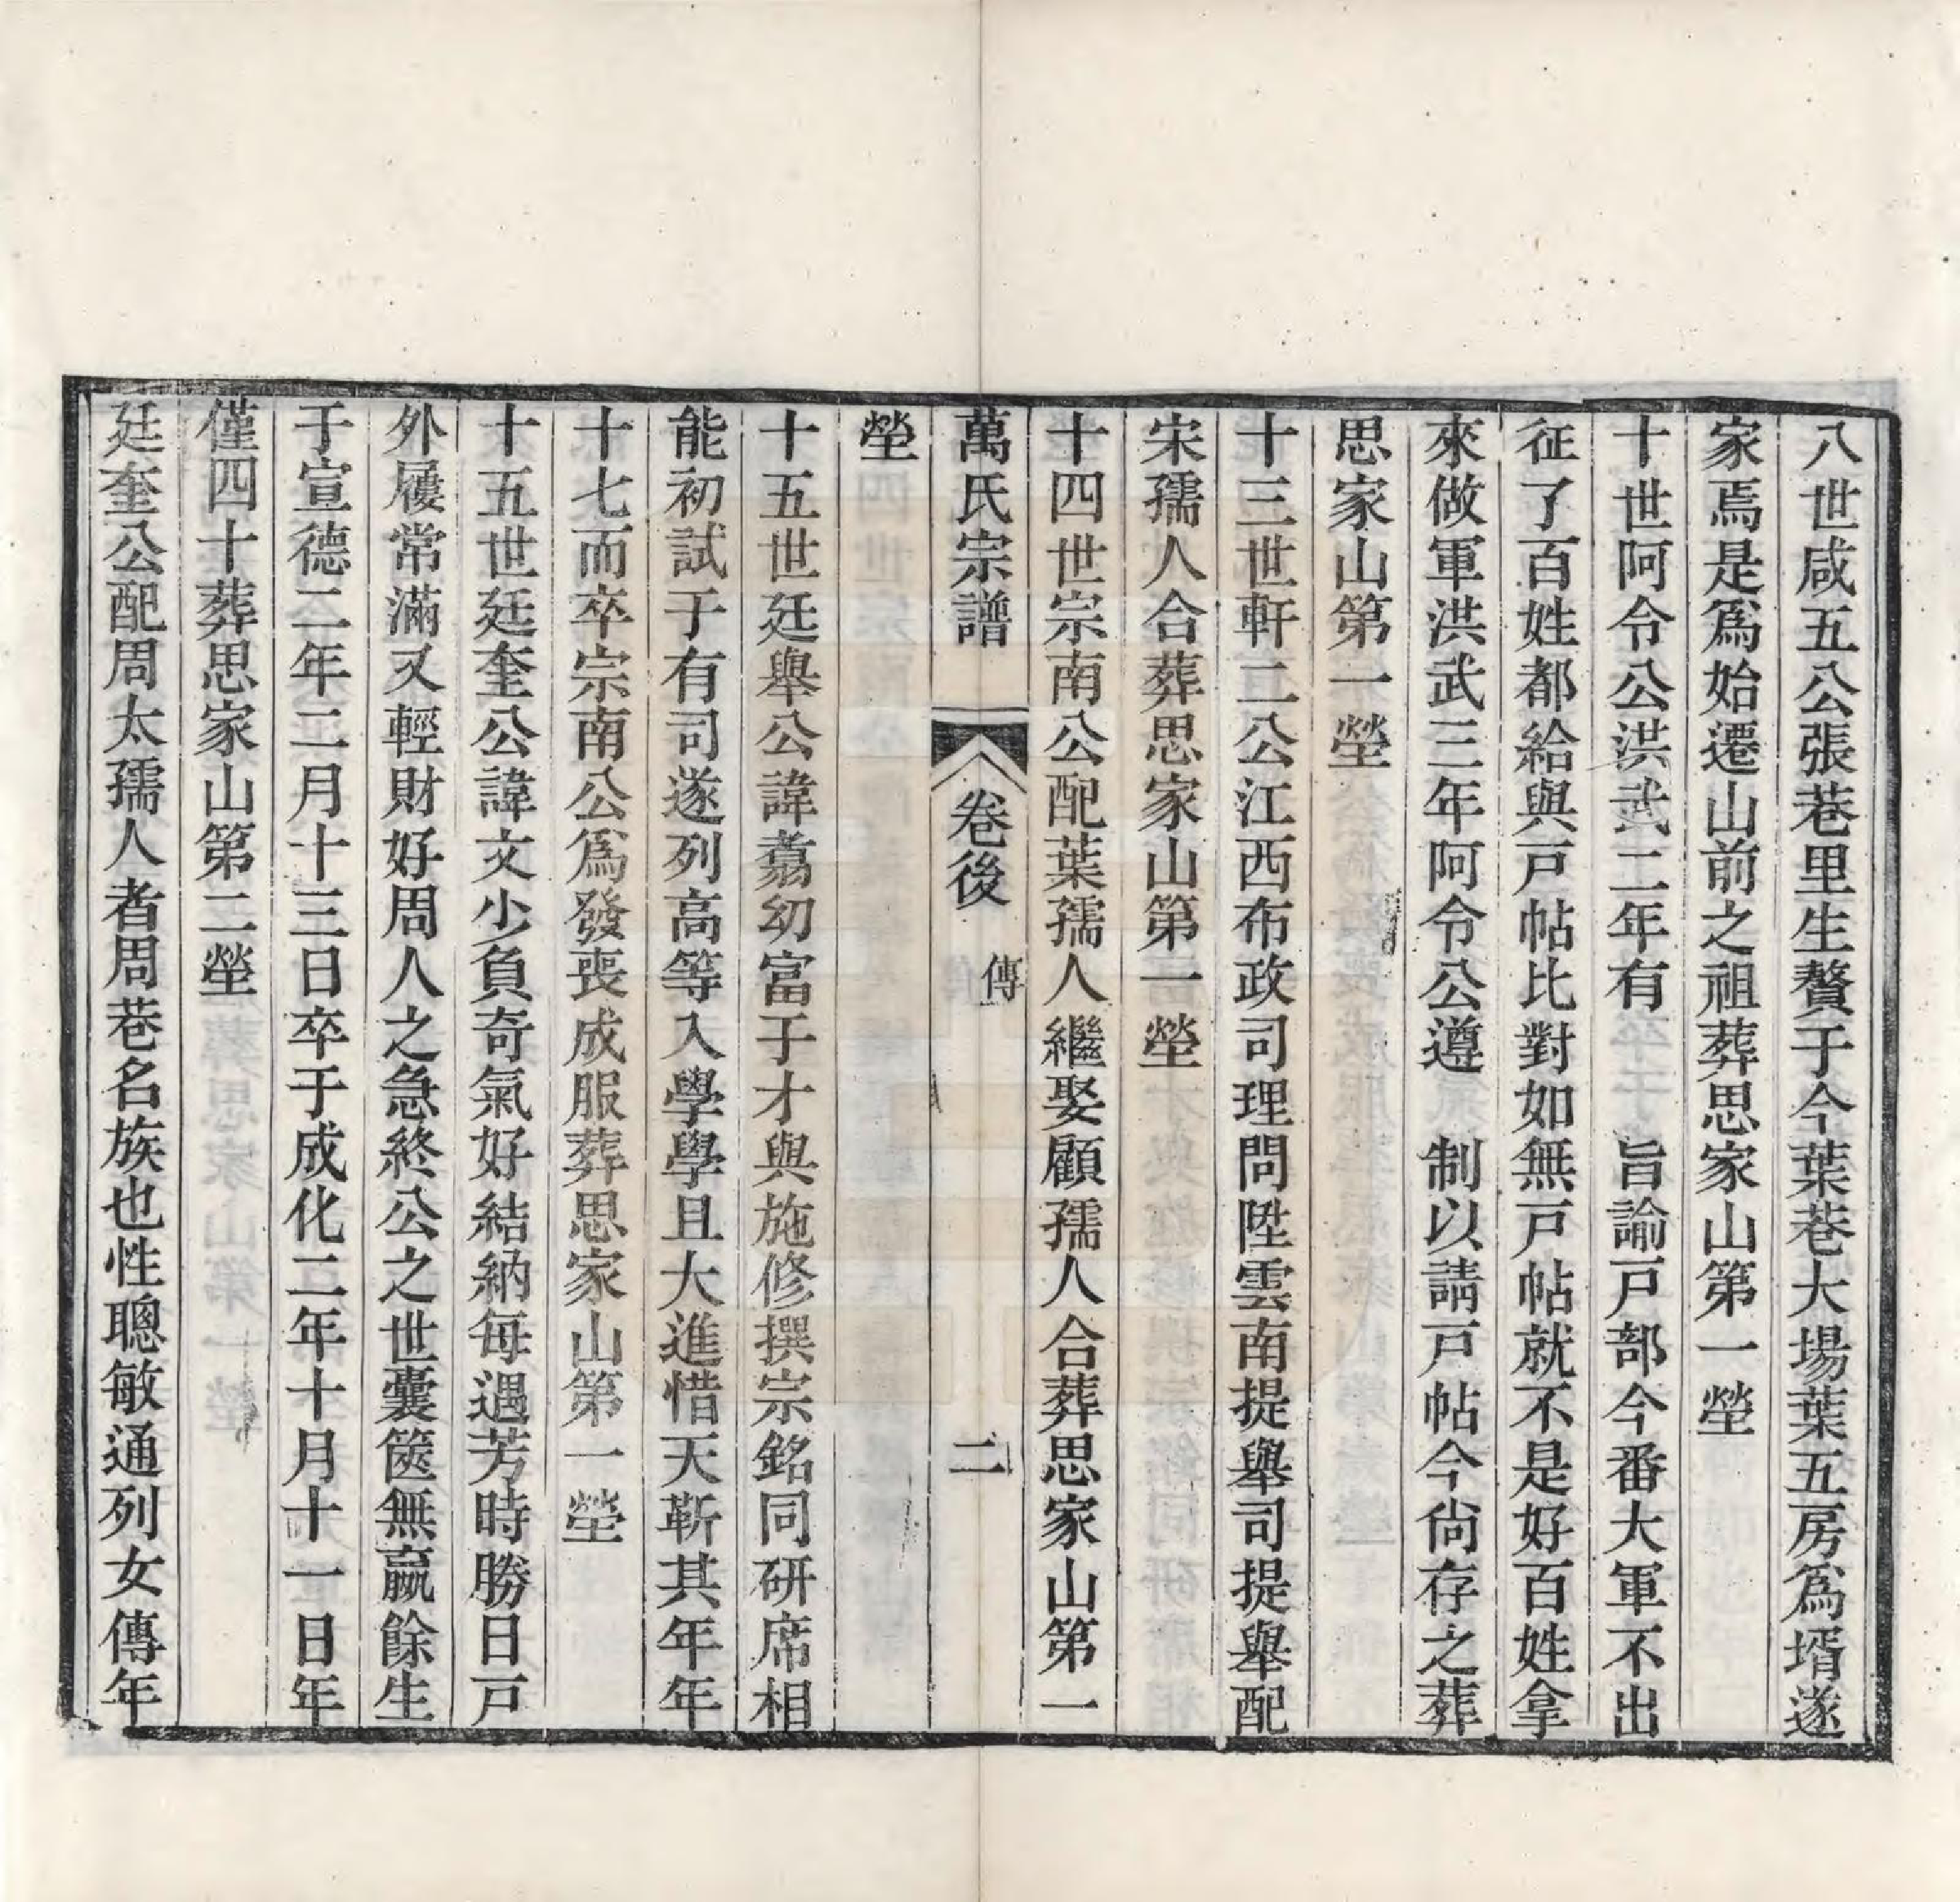 八世咸五公張巷里生贅于今葉巷大場葉五房爲壻遂
家焉是爲始遷山前之祖葬思家山第一塋
十世阿令公洪武二年有　旨諭戸部今番大軍不出
征了百姓都給與戸帖比對如無戸帖就不是好百姓拿
來做軍洪武三年阿令公遵　制以請戸帖今尙存之葬
思家山第一塋
十三世軒二公江西布政司理問陞雲南提舉司提舉配
宋孺人合葬思家山第一塋
十四世宗南公配葉孺人繼娶顧孺人合葬思家山第一
萬氏宗譜　卷後　傳　二
塋
十五世廷舉公諱翥幼富于才與施修撰宗銘同硏席相
能初試于有司遂列高等入學學且大進惜天靳其年年
十七而卒宗南公爲發喪成服葬思家山第一塋
十五世廷奎公諱文少負奇氣好結納每遇芳時勝日戸
外屨常滿又輕財好周人之急終公之世囊篋無嬴餘生
于宣德二年二月十三日卒于成化二年十月十一日年
僅四十葬思家山第二塋
廷奎公配周太孺人者周巷名族也性聰敏通列女傳年